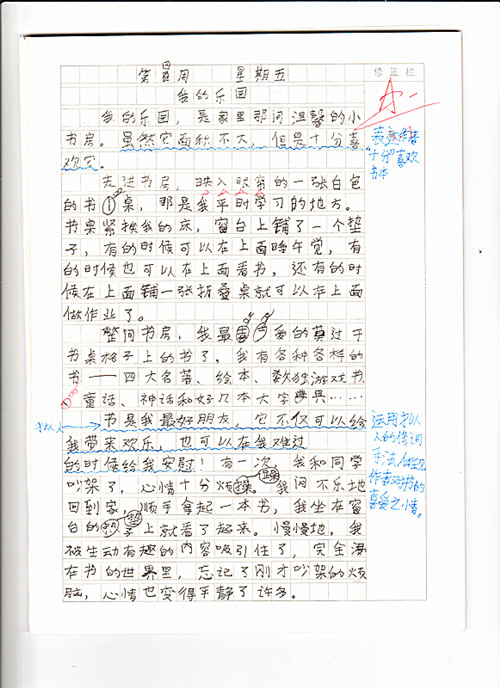 第四周 星期五
修正栏
我的乐园
A-
我的乐园，是家里那间温馨的小
书房。虽然它面积不大，但是十分喜
欢它。
"十分"喜欢
走进书房，映入眼帘的一张白色
的书桌，那是我平时学习的地方。
书桌紧挨我的床，窗台上铺了一个垫
子，有的时候可以在上面睡午觉，有
的时候也可以在上面看书，还有的时
候在上面铺一张折叠桌就可以在上面
做作业了。
整间书房，我最喜爱的莫过于
书桌格子上的书了，我有各种各样的
书——四大名著、绘本、数独游戏书、
童话、神话和好几本大字典……
书是我最好朋友，它不仅可以给
我带来欢乐，也可以在我难过
的时候给我安慰！有一次，我和同学
吵架了，心情十分烦躁。我闷不乐地
回到家，顺手拿起一本书，我坐在窗
台的垫子上就看了起来。慢慢地，我
被生动有趣的内容吸引住了，完全沉
在书的世界里，忘记了刚才吵架的烦
恼，心情也变得平静了许多。
运用拟人
的修词
手法，
作者对书的
喜爱之情。